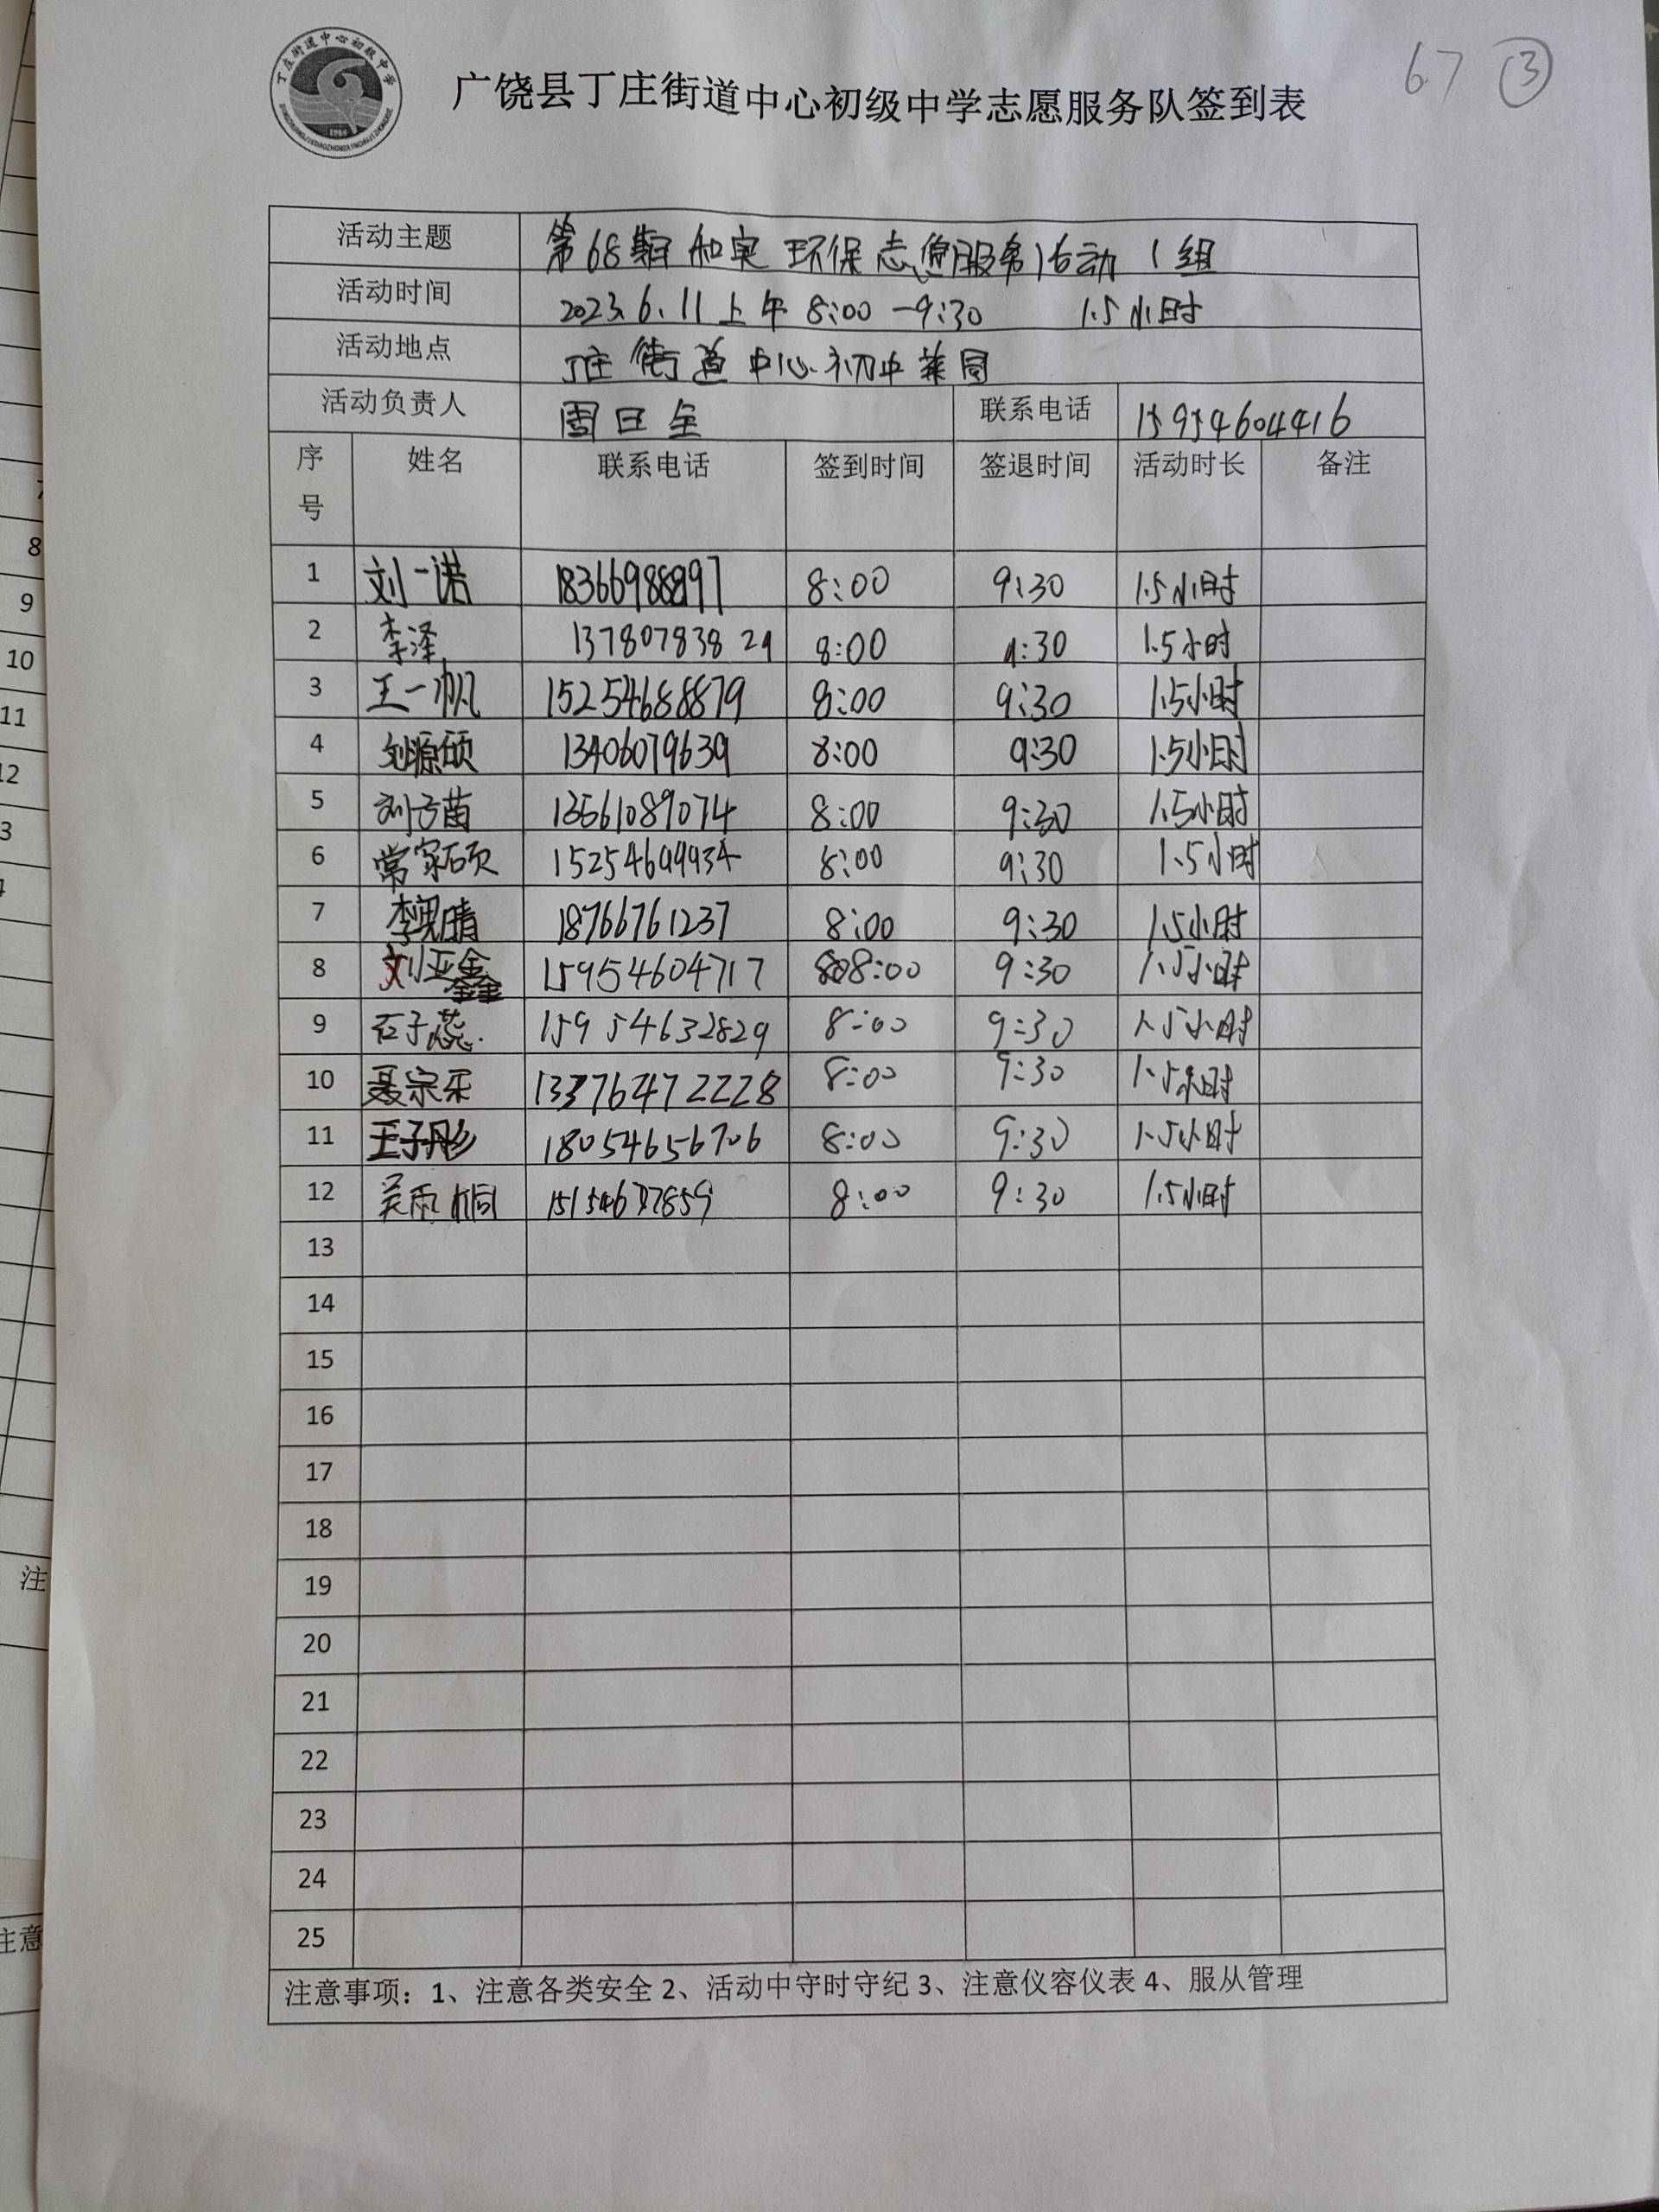 丁庄街道中心初级中学
1986
广饶县丁庄街道中心初级中学志愿服务队签到表
67 ③
活动主题 第68期和宽环保志愿服务活动1组
活动时间 2023.6.11上午8:00-9:30 1.5小时
活动地点 丁庄街道中心初中菜园
活动负责人 周曰全 联系电话 15954604416
序号 姓名 联系电话 签到时间 签退时间 活动时长 备注
1 刘一诺 8:00 9:30 1.5小时
2 李泽 13780783829 8:00 9:30 1.5小时
3 王一帆 15254688879 8:00 9:30 1.5小时
4 刘源硕 13406079639 8:00 9:30 1.5小时
5 刘方苗 13561089074 8:00 9:30 1.5小时
6 常家硕 15254699934 8:00 9:30 1.5小时
7 18766761237 8:00 9:30 1.5小时
8 刘亚鑫 15954604717 8:00 9:30 1.5小时
9 石子蕊 15954632829 8:00 9:30 1.5小时
10 聂宗乐 8:00 9:30 1.5小时
11 王子彤 18054656706 8:00 9:30 1.5小时
12 吴雨桐 8:00 9:30 1.5小时
13
14
15
16
17
18
19
20
21
22
23
24
25
注意事项：1、注意各类安全 2、活动中守时守纪 3、注意仪容仪表 4、服从管理